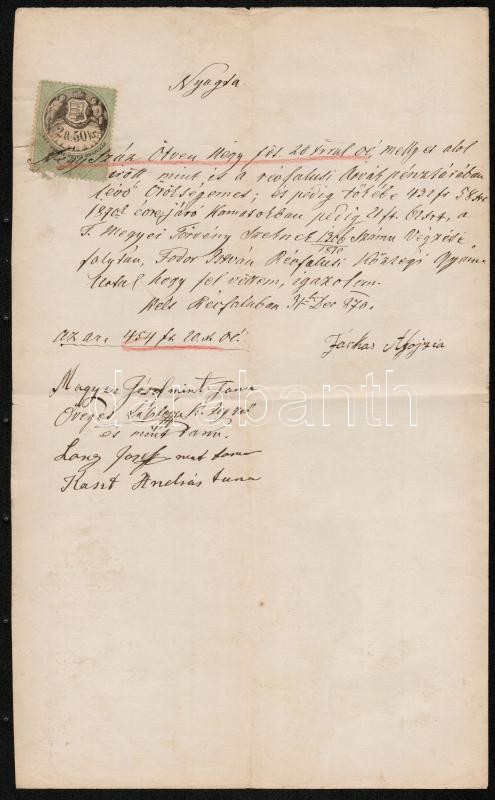 Nyugta
2 fl. 50 kr.
Négy Száz Ötven Négy frt 20 xrral oé, melly es alol
irott mint is a révfalusi Árvák pénztárában
lévő Örökségemet; és pedig tőkébe 431 fr 58 xr
1870 évre járó Kamatokban pedig
T. Megyei Törvény Szék 1306/1870 Számu Végzése
folytán, Fodor István Révfalusi Községi Gyám
által hogy fel vettem, igazolom.
Kelt Révfaluban 31 Dec 870.
az az: 454 fr. 20 xr oé.
Farkas Alojzia
darabanth
Magyar József mint Tanu
Öveges k. Ügyél
és mint Tanu.
Lang József mint tanu
Kaszt András tanu